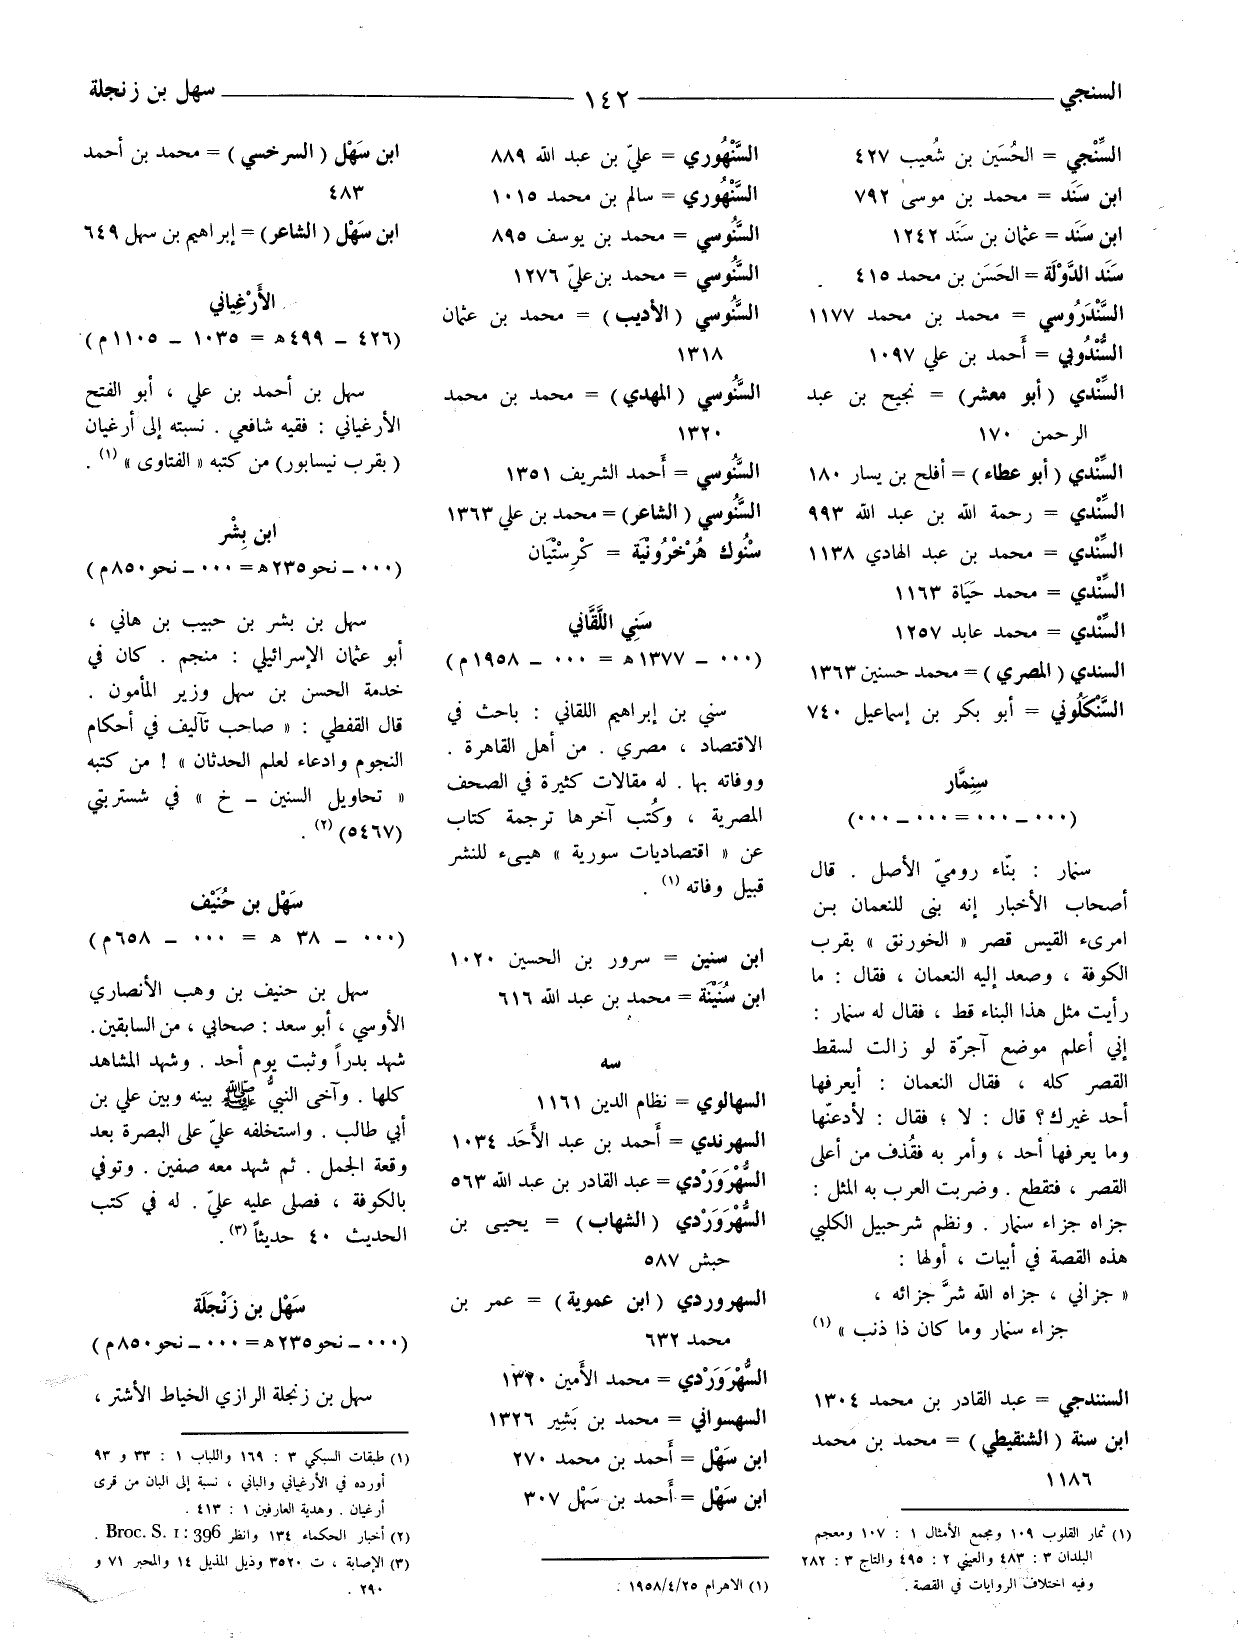 السنجي
١٤٢
سهل بن زنجلة
السِّنْجي = الحُسَين بن شُعيب ٤٢٧
ابن سَنَد = محمد بن موسى ٧٩٢
ابن سَنَد = عثمان بن سَنَد ١٢٤٢
سَنَد الدَّوْلَة = الحَسَن بن محمد ٤١٥
السَّنْدَرُوسي = محمد بن محمد ١١٧٧
السُّنْدُوبي = أحمد بن علي ١٠٩٧
السِّنْدي (أبو معشر) = نجيح بن عبد
الرحمن ١٧٠
السِّنْدي (أبو عطاء) = أفلح بن يسار ١٨٠
السِّنْدي = رحمة الله بن عبد الله ٩٩٣
السِّنْدي = محمد بن عبد الهادي ١١٣٨
السِّنْدي = محمد حَيَاة ١١٦٣
السِّنْدي = محمد عابد ١٢٥٧
السندي (المصري) = محمد حسنين ١٣٦٣
السَّنْكَلُوني = أبو بكر بن إسماعيل ٧٤٠
سِنِمَّار
(٠٠٠ ــ ٠٠٠ = ٠٠٠ ــ ٠٠٠)
سنمار : بنّاء روميّ الأصل . قال
أصحاب الأخبار إنه بنى للنعمان بن
امرىء القيس قصر « الخورنق » بقرب
الكوفة ، وصعد إليه النعمان ، فقال : ما
رأيت مثل هذا البناء قط ، فقال له سنمار :
إني أعلم موضع آجرّة لو زالت لسقط
القصر كله ، فقال النعمان : أيعرفها
أحد غيرك؟ قال : لا ؛ فقال : لأدعنّها
وما يعرفها أحد ، وأمر به فقُذف من أعلى
القصر ، فتقطع . وضربت العرب به المثل :
جزاه جزاء سنمار . ونظم شرحبيل الكلبي
هذه القصة في أبيات ، أولها :
« جزاني ، جزاه الله شرَّ جزائه ،
جزاء سنمار وما كان ذا ذنب » (١)
السنندجي = عبد القادر بن محمد ١٣٠٤
ابن سنة (الشنقيطي) = محمد بن محمد
١١٨٦
(١) ثمار القلوب ١٠٩ ومجمع الأمثال ١ : ١٠٧ ومعجم
البلدان ٣ : ٤٨٣ والعيني ٢ : ٤٩٥ والتاج ٣ : ٢٨٢
وفيه اختلاف الروايات في القصة .
السَّنْهُوري = عليّ بن عبد الله ٨٨٩
السَّنْهُوري = سالم بن محمد ١٠١٥
السَّنُوسي = محمد بن يوسف ٨٩٥
السَّنُوسي = محمد بن عليّ ١٢٧٦
السَّنُوسي (الأديب) = محمد بن عثمان
١٣١٨
السَّنُوسي (المهدي) = محمد بن محمد
١٣٢٠
السَّنُوسي = أحمد الشريف ١٣٥١
السَّنُوسي (الشاعر) = محمد بن علي ١٣٦٣
سْنُوك هُرْخْرُونْيَة = كْرِسْتْيَان
سَنِي اللَّقَّاني
(٠٠٠ ــ ١٣٧٧ هـ = ٠٠٠ ــ ١٩٥٨ م)
سني بن إبراهيم اللقاني : باحث في
الاقتصاد ، مصري . من أهل القاهرة .
ووفاته بها . له مقالات كثيرة في الصحف
المصرية ، وكُتب آخرها ترجمة كتاب
عن « اقتصاديات سورية » هيىء للنشر
قبيل وفاته (١) .
ابن سنين = سرور بن الحسين ١٠٢٠
ابن سُنَيْنَة = محمد بن عبد الله ٦١٦
سه
السهالوي = نظام الدين ١١٦١
السهرندي = أحمد بن عبد الأَحَد ١٠٣٤
السُّهْرَوَرْدي = عبد القادر بن عبد الله ٥٦٣
السُّهْرَوَرْدي (الشهاب) = يحيى بن
حبش ٥٨٧
السهروردي (ابن عموية) = عمر بن
محمد ٦٣٢
السُّهْرَوَرْدي = محمد الأَمين ١٣٢٠
السهسواني = محمد بن بَشير ١٣٢٦
ابن سَهْل = أحمد بن محمد ٢٧٠
ابن سَهْل = أحمد بن سَهْل ٣٠٧
(١) الاهرام ١٩٥٨/٤/٢٥ .
ابن سَهْل (السرخسي) = محمد بن أحمد
٤٨٣
ابن سَهْل (الشاعر) = إبراهيم بن سهل ٦٤٩
الأَرْغِياني
(٤٢٦ ــ ٤٩٩ هـ = ١٠٣٥ ــ ١١٠٥ م)
سهل بن أحمد بن علي ، أبو الفتح
الأرغياني : فقيه شافعي . نسبته إلى أرغيان
(بقرب نيسابور) من كتبه « الفتاوى » (١) .
ابن بِشْر
(٠٠٠ ــ نحو ٢٣٥ هـ = ٠٠٠ ــ نحو ٨٥٠ م)
سهل بن بشر بن حبيب بن هاني ،
أبو عثمان الإسرائيلي : منجم . كان في
خدمة الحسن بن سهل وزير المأمون .
قال القفطي : « صاحب تآليف في أحكام
النجوم وادعاء لعلم الحدثان » ! من كتبه
« تحاويل السنين ــ خ » في شستربتي
(٥٤٦٧) (٢) .
سَهْل بن حُنَيْف
(٠٠٠ ــ ٣٨ هـ = ٠٠٠ ــ ٦٥٨ م)
سهل بن حنيف بن وهب الأنصاري
الأوسي ، أبو سعد : صحابي ، من السابقين.
شهد بدراً وثبت يوم أحد . وشهد المشاهد
كلها . وآخى النبيُّ ﷺ بينه وبين علي بن
أبي طالب . واستخلفه عليّ على البصرة بعد
وقعة الجمل . ثم شهد معه صفين . وتوفي
بالكوفة ، فصلى عليه عليّ . له في كتب
الحديث ٤٠ حديثاً (٣) .
سَهْل بن زَنْجَلَة
(٠٠٠ ــ نحو ٢٣٥ هـ = ٠٠٠ ــ نحو ٨٥٠ م)
سهل بن زنجلة الرازي الخياط الأشتر ،
(١) طبقات السبكي ٣ : ١٦٩ واللباب ١ : ٣٣ و ٩٣
أورده في الأرغياني والباني ، نسبة إلى البان من قرى
أرغيان . وهدية العارفين ١ : ٤١٣ .
(٢) أخبار الحكماء ١٣٤ وانظر Broc. S. 1 : 396 .
(٣) الإصابة ، ت ٣٥٢٠ وذيل المذيل ١٤ والمحبر ٧١ و
٢٩٠ .